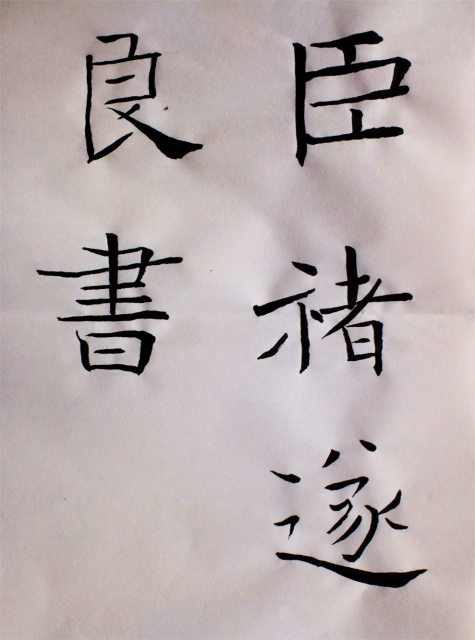 臣褚遂
良書